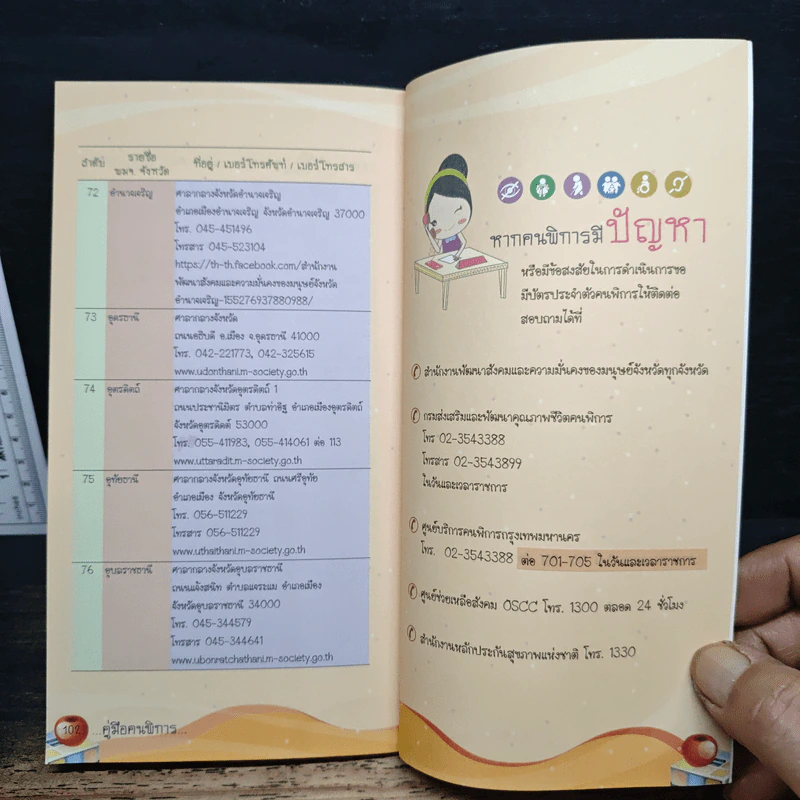 ลำดับ
รายชื่อ
พมจ. จังหวัด
ที่อยู่ / เบอร์โทรศัพท์ / เบอร์โทรสาร
72
อำนาจเจริญ
ศาลากลางจังหวัดอำนาจเจริญ
อำเภอเมืองอำนาจเจริญ จังหวัดอำนาจเจริญ 37000
โทร. 045-451496
โทรสาร 045-523104
https://th-th.facebook.com/สำนักงาน
พัฒนาสังคมและความมั่นคงของมนุษย์จังหวัด
อำนาจเจริญ-155276937880988/
73
อุดรธานี
ศาลากลางจังหวัด
ถนนอธิบดี อ.เมือง จ.อุดรธานี 41000
โทร. 042-221773, 042-325615
www.udonthani.m-society.go.th
74
อุตรดิตถ์
ศาลากลางจังหวัดอุตรดิตถ์ 1
ถนนประชานิมิตร ตำบลท่าอิฐ อำเภอเมืองอุตรดิตถ์
จังหวัดอุตรดิตถ์ 53000
โทร. 055-411983, 055-414061 ต่อ 113
www.uttaradit.m-society.go.th
75
อุทัยธานี
ศาลากลางจังหวัดอุทัยธานี ถนนศรีอุทัย
อำเภอเมือง จังหวัดอุทัยธานี
โทร. 056-511229
โทรสาร 056-511229
www.uthaithani.m-society.go.th
76
อุบลราชธานี
ศาลากลางจังหวัดอุบลราชธานี
ถนนแจ้งสนิท ตำบลแจระแม อำเภอเมือง
จังหวัดอุบลราชธานี 34000
โทร. 045-344579
โทรสาร 045-344641
www.ubonratchathani.m-society.go.th
102
...คู่มือคนพิการ...
หากคนพิการมี ปัญหา
หรือมีข้อสงสัยในการดำเนินการขอ
มีบัตรประจำตัวคนพิการให้ติดต่อ
สอบถามได้ที่
สำนักงานพัฒนาสังคมและความมั่นคงของมนุษย์จังหวัดทุกจังหวัด
กรมส่งเสริมและพัฒนาคุณภาพชีวิตคนพิการ
โทร 02-3543388
โทรสาร 02-3543899
ในวันและเวลาราชการ
ศูนย์บริการคนพิการกรุงเทพมหานคร
โทร. 02-3543388 ต่อ 701-705 ในวันและเวลาราชการ
ศูนย์ช่วยเหลือสังคม OSCC โทร. 1300 ตลอด 24 ชั่วโมง
สำนักงานหลักประกันสุขภาพแห่งชาติ โทร. 1330